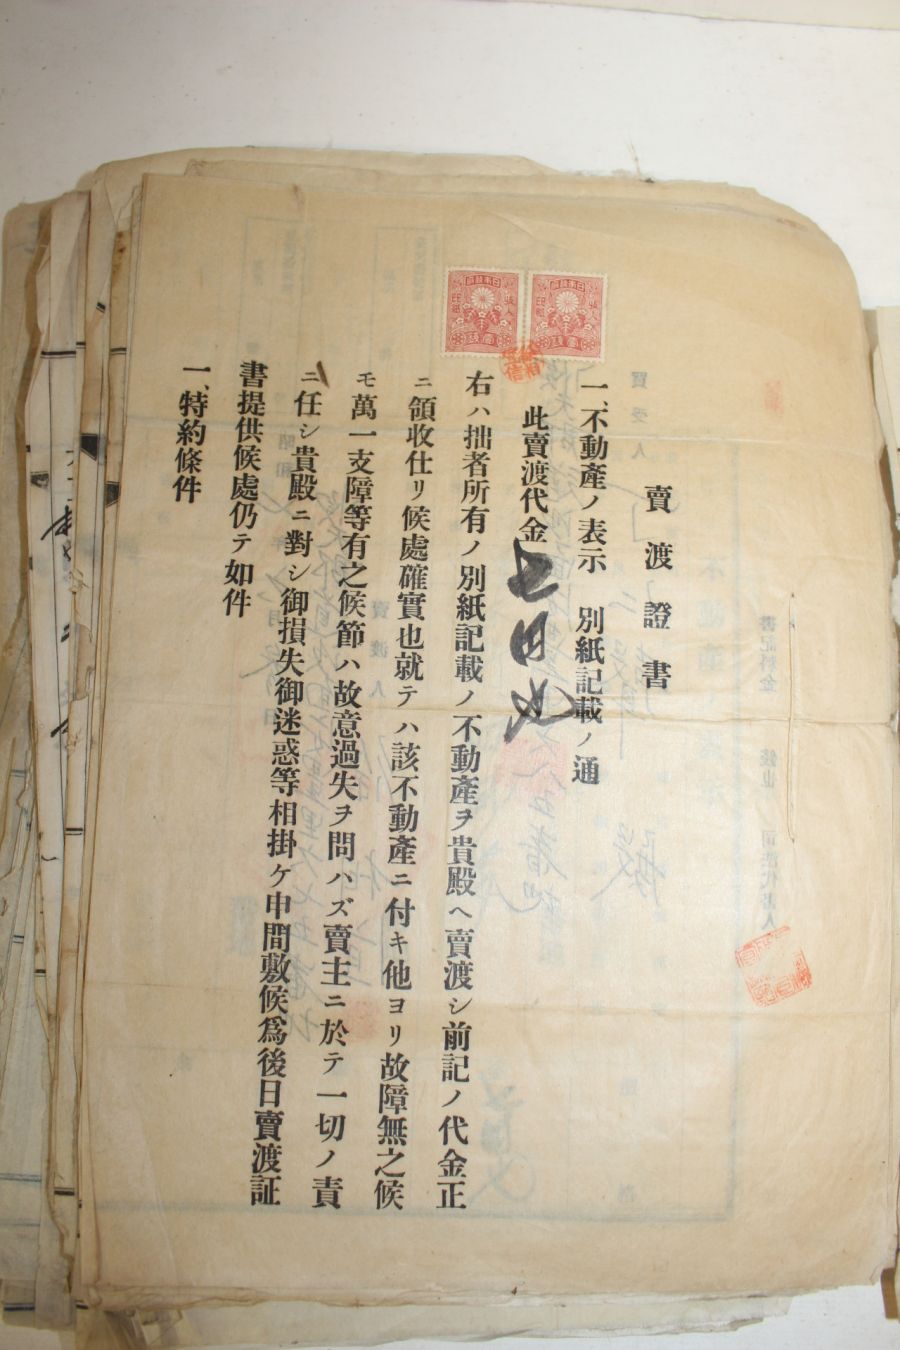 賣渡證書
一、不動産ノ表示 別紙記載ノ通
此賣渡代金
右ハ拙者所有ノ別紙記載ノ不動産ヲ貴殿ヘ賣渡シ前記ノ代金正
ニ領收仕リ候處確實也就テハ該不動産ニ付キ他ヨリ故障無之候
モ萬一支障等有之候節ハ故意過失ヲ問ハズ賣主ニ於テ一切ノ責
ニ任シ貴殿ニ對シ御損失御迷惑等相掛ケ申間敷候爲後日賣渡証
書提供候處仍テ如件
一、特約條件